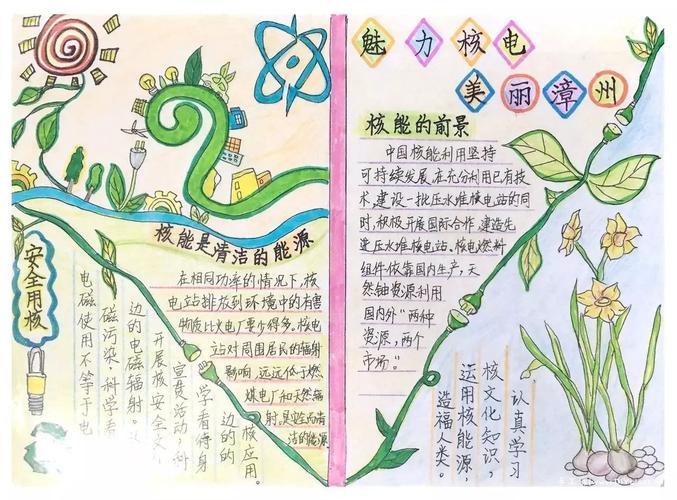 核能是清洁的能源
在相同功率的情况下,核
电站排放到环境中的有害
物质比火电厂要少得多,核电
站对周围居民的辐射
影响,远远低于燃
煤电厂和天然辐
射,是安全清
洁的能源
安全用核
电磁使用不等于电
磁污染,科学看
边的电磁辐射。
开展核安全文
宣教活动,科
学看待身
边的的
核应用。
魅力核电
美丽漳州
核能的前景
中国核能利用坚持
可持续发展,在充分利用已有技
术,建设一批压水堆核电站的同
时,积极开展国际合作,建造先
进压水堆核电站。核电燃料
组件依靠国内生产,天
然铀资源利用
国内外“两种
资源,两个
市场”。
认真学习
核文化知识,
运用核能源,
造福人类。